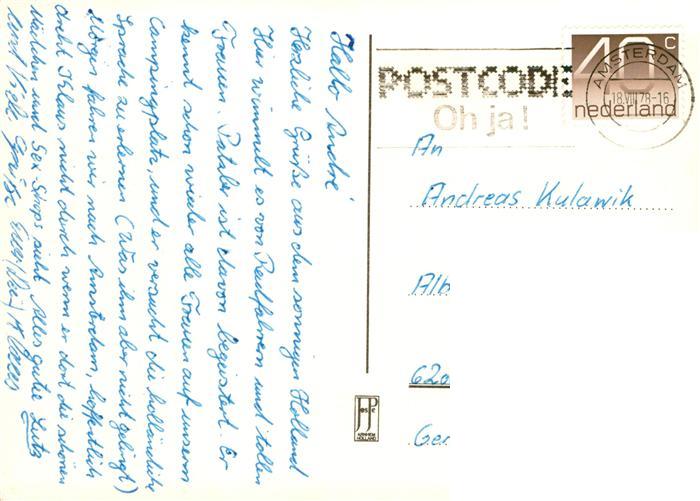 Hallo André
Herzliche Grüße aus dem sonnigen Holland
Hier wimmelt es von Radfahrern und tollen
Frauen. ist davon begeistert. Er
kennt schon wieder alle Frauen auf unserm
Campingplatz, und er versucht die holländische
Sprache zu erlernen (Was ihm aber nicht gelingt)
Morgen fahren wir nach Amsterdam, hoffentlich
dreht Klaus nicht durch wenn er dort die schönen
Mädchen und Sex Shops sieht. Alles gute Lutz
und viele Grüße
POSTCODE
Oh ja!
AMSTERDAM
18.VIII.78-16
40 c
nederland
An
Andreas Kulawik
Alb
620
Ger
JosPe
ARNHEM
HOLLAND